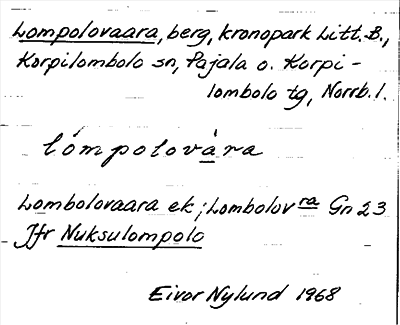 Lompolovaara, berg, kronopark Litt. B.,
Korpilombolo sn, Pajala o. Korpi-
lombolo tg, Norrb. l.
lómpolovàra
Lombolovaara ek; Lombolov ra Gn 23
Jfr Nuksulompolo
Eivor Nylund 1968